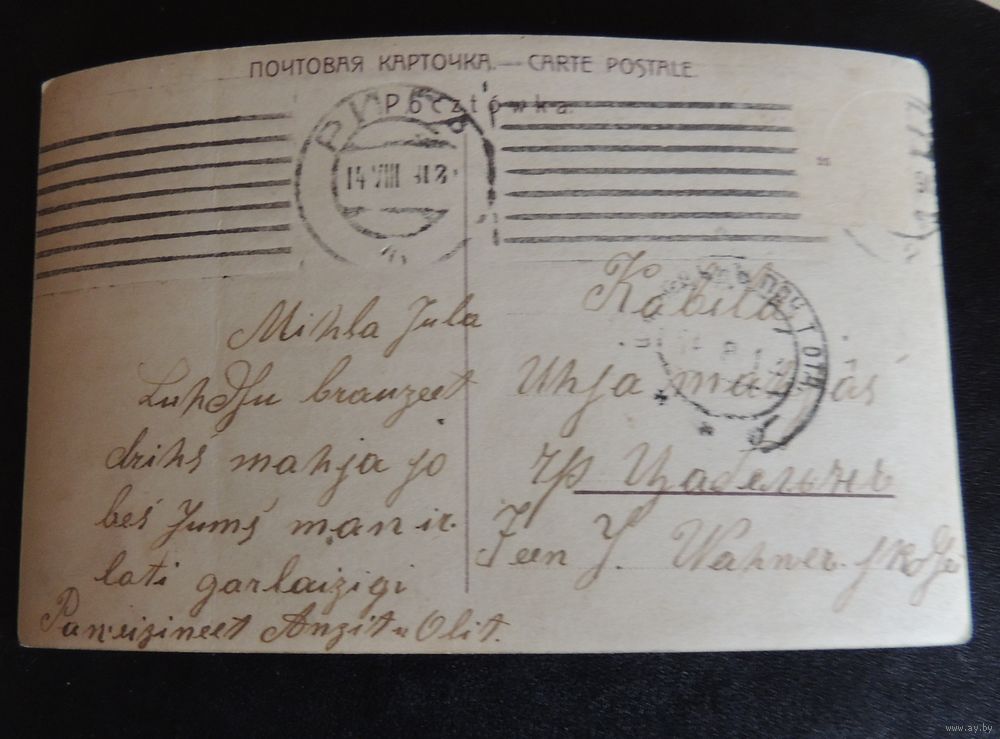 ПОЧТОВАЯ КАРТОЧКА. — CARTE POSTALE.
Pocztówka.
РИГА
14 VIII
ПОЧ. Т. ОТД.
Mihla Jula
Luhdsu brauzeet
drihs mahja jo
bes Jums man ir
loti garlaizigi
Pasweizineet Anzit u Olit.
Kabilä,
Uhja
чр Цабельнъ
Jeen J. Wahner
www.ay.by